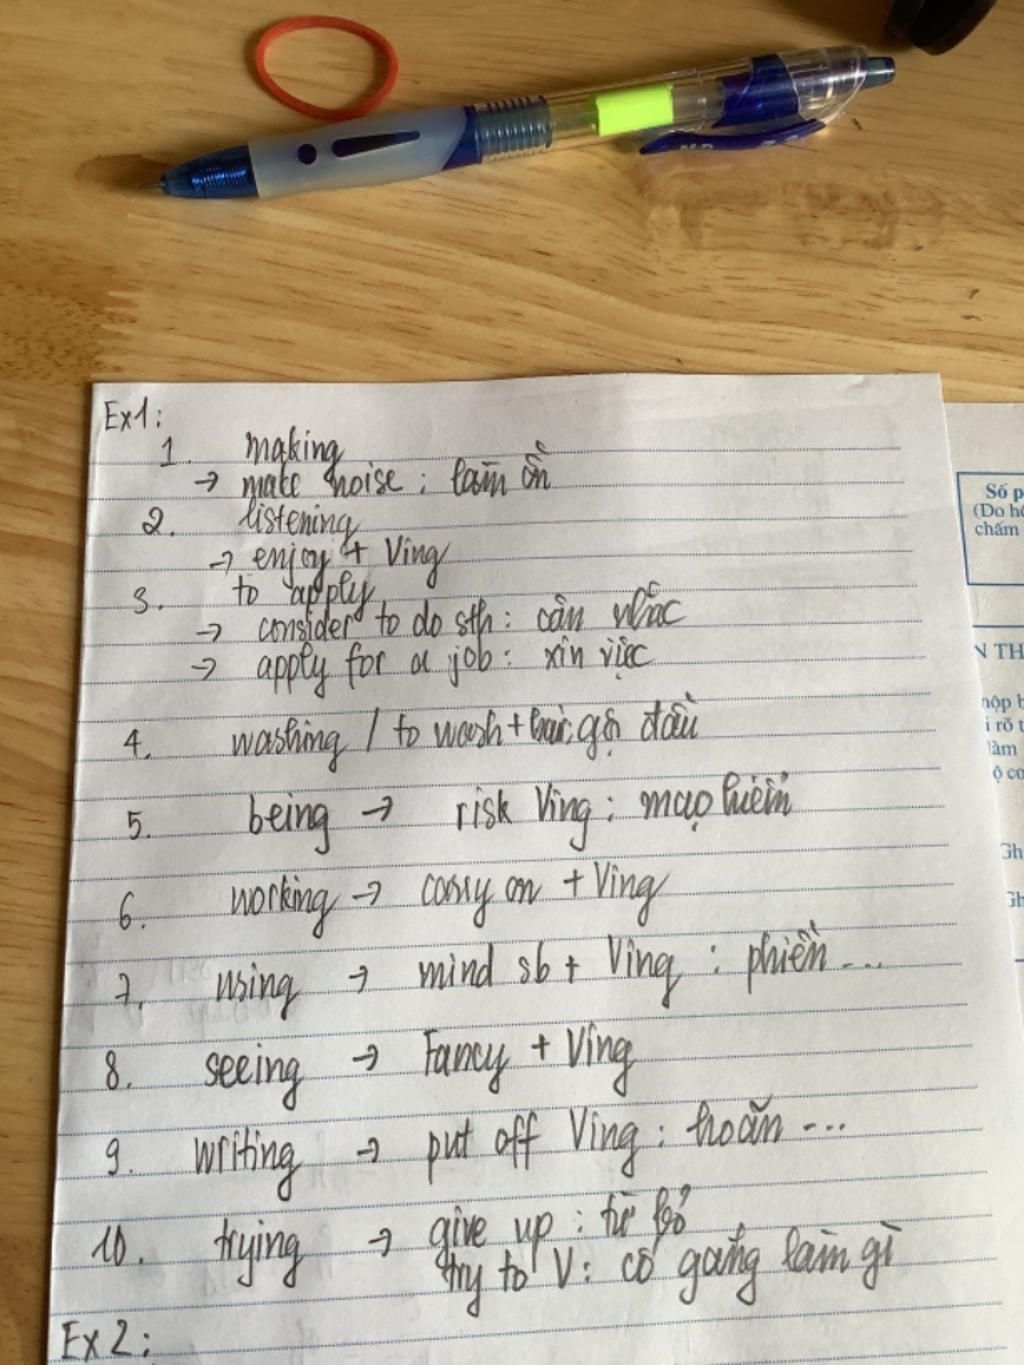 Ex1:
1. making
→ make noise : làm ồn
2. listening
→ enjoy + Ving
3. to apply
→ consider to do sth : cân nhắc
→ apply for a job : xin việc
4. washing / to wash + hair: gội đầu
5. being → risk Ving : mạo hiểm
6. working → carry on + Ving
7. using → mind sb + Ving : phiền ...
8. seeing → Fancy + Ving
9. writing → put off Ving : hoãn ...
10. trying → give up : từ bỏ
try to V : cố gắng làm gì
Ex 2 :
Số p
(Do h
chấm
N TH
nộp b
i rõ t
làm
ộ co
Gh
Gh